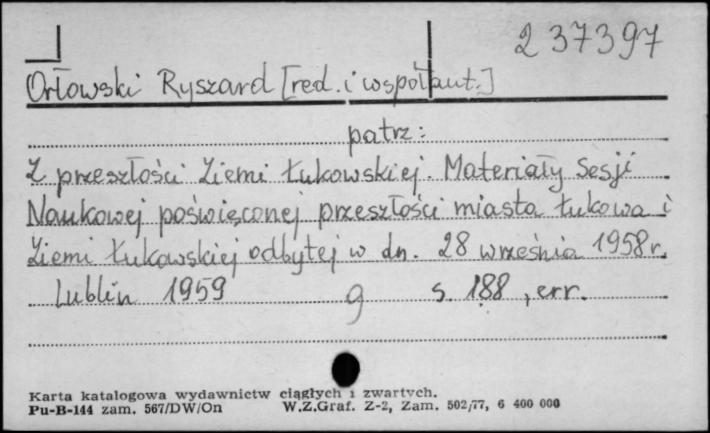 237397
Orłowski Ryszard [red. i współaut.]
patrz:
Z przeszłości Ziemi Łukowskiej. Materiały Sesji
Naukowej poświęconej przeszłości miasta Łukowa i
Ziemi Łukowskiej odbytej w dn. 28 września 1958 r.
Lublin 1959 9 s. 188, err.
Karta katalogowa wydawnictw ciągłych i zwartych.
Pu-B-144 zam. 567/DW/On W.Z.Graf. Z-2, Zam. 502/77, 6 400 000